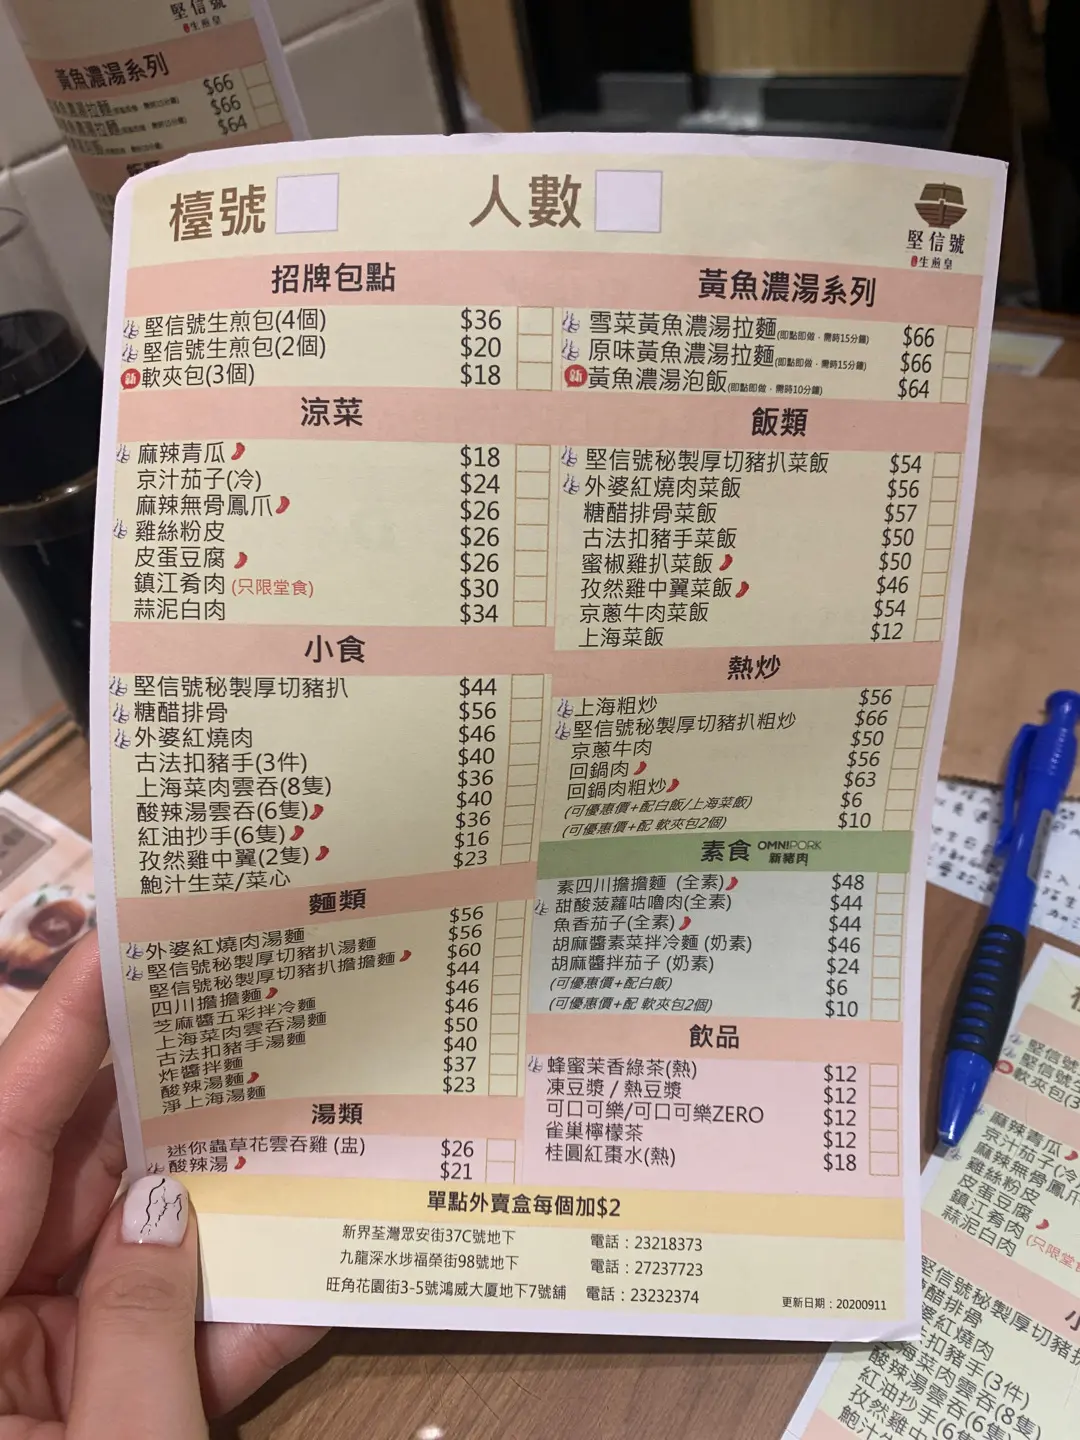 檯號
人數
堅信號
生煎皇
招牌包點
堅信號生煎包(4個) $36
堅信號生煎包(2個) $20
新 軟夾包(3個) $18
涼菜
麻辣青瓜 $18
京汁茄子(冷) $24
麻辣無骨鳳爪 $26
雞絲粉皮 $26
皮蛋豆腐 $26
鎮江肴肉 (只限堂食) $30
蒜泥白肉 $34
小食
堅信號秘製厚切豬扒 $44
糖醋排骨 $56
外婆紅燒肉 $46
古法扣豬手(3件) $40
上海菜肉雲吞(8隻) $36
酸辣湯雲吞(6隻) $40
紅油抄手(6隻) $36
孜然雞中翼(2隻) $16
鮑汁生菜/菜心 $23
麵類
外婆紅燒肉湯麵 $56
堅信號秘製厚切豬扒湯麵 $56
堅信號秘製厚切豬扒擔擔麵 $60
四川擔擔麵 $44
芝麻醬五彩拌冷麵 $46
上海菜肉雲吞湯麵 $46
古法扣豬手湯麵 $50
炸醬拌麵 $40
酸辣湯麵 $37
淨上海湯麵 $23
湯類
迷你蟲草花雲吞雞 (盅) $26
酸辣湯 $21
黃魚濃湯系列
雪菜黃魚濃湯拉麵(即點即做，需時15分鐘) $66
原味黃魚濃湯拉麵(即點即做，需時15分鐘) $66
新 黃魚濃湯泡飯(即點即做，需時10分鐘) $64
飯類
堅信號秘製厚切豬扒菜飯 $54
外婆紅燒肉菜飯 $56
糖醋排骨菜飯 $57
古法扣豬手菜飯 $50
蜜椒雞扒菜飯 $50
孜然雞中翼菜飯 $46
京蔥牛肉菜飯 $54
上海菜飯 $12
熱炒
上海粗炒 $56
堅信號秘製厚切豬扒粗炒 $66
京蔥牛肉 $50
回鍋肉 $56
回鍋肉粗炒 $63
(可優惠價+配白飯/上海菜飯) $6
(可優惠價+配 軟夾包2個) $10
素食 OMNIPORK 新豬肉
素四川擔擔麵 (全素) $48
甜酸菠蘿咕嚕肉(全素) $44
魚香茄子(全素) $44
胡麻醬素菜拌冷麵 (奶素) $46
胡麻醬拌茄子 (奶素) $24
(可優惠價+配白飯) $6
(可優惠價+配 軟夾包2個) $10
飲品
蜂蜜茉香綠茶(熱) $12
凍豆漿 / 熱豆漿 $12
可口可樂/可口可樂ZERO $12
雀巢檸檬茶 $12
桂圓紅棗水(熱) $18
單點外賣盒每個加$2
新界荃灣眾安街37C號地下 電話：23218373
九龍深水埗福榮街98號地下 電話：27237723
旺角花園街3-5號鴻威大廈地下7號舖 電話：23232374
更新日期：20200911
堅信號
生煎皇
黃魚濃湯系列
濃湯拉麵 $66
濃湯拉麵 $66
$64
堅信號
堅信號
軟夾包(3
麻辣青瓜
京汁茄子(冷
麻辣無骨鳳爪
雞絲粉皮
皮蛋豆腐
鎮江肴肉 (只限堂食
蒜泥白肉
堅信號秘製厚切豬扒
糖醋排骨
外婆紅燒肉
扣豬手(3件)
上海菜肉雲吞(8隻)
酸辣湯雲吞(6隻)
紅油抄手(6隻
孜然雞中
鮑汁